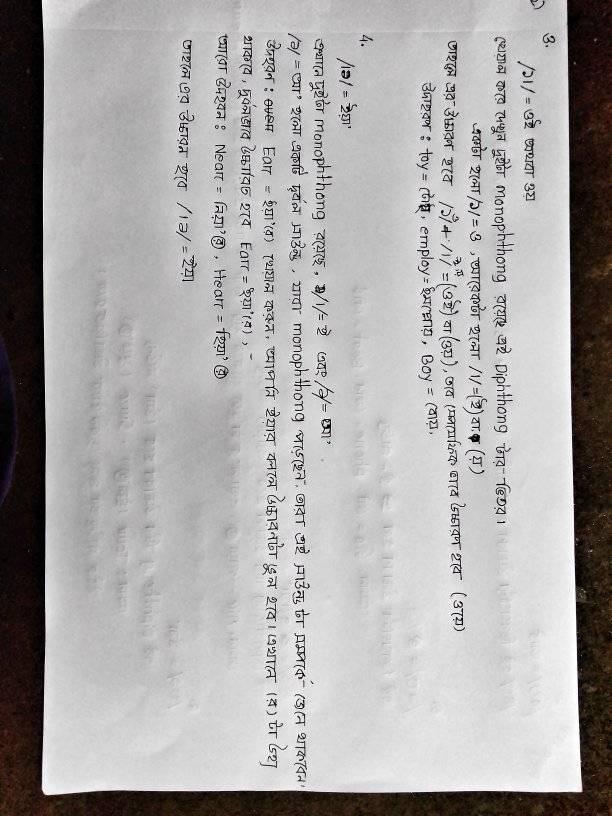 3. /ɔɪ/ = ওই অথবা ওয়
খেয়াল করে দেখুন দুইটা monophthong রয়েছে এই Diphthong টার ভিতর।
একটা হলো /ɔ/ = ও , আরেকটা হলো /ɪ/ = (ই) বা (য়)
তাহলে এর উচ্চারণ হবে /ɔ/ + /ɪ/ = (ওই) বা (ওয়), তবে ভাবে উচ্চারণ হবে (ওয়)
উদাহরণ : toy = টোয়, employ = ইমপ্লোয়, Boy = বোয়,
4. /ɪə/ = ইয়া'
এখানে দুইটা monophthong রয়েছে, /ɪ/ = ই এবং /ə/ = আ'
/ə/ = আ' হলো একটি দুর্বল সাউন্ড, যারা monophthong পড়েছেন, তারা এই সাউন্ড টা সম্পর্কে জেনে থাকবেন।
উদাহরণ : Ear = ইয়া'(র) খেয়াল করুন, আপনি ইয়ার বললে উচ্চারণটা ভুল হবে। এখানে (র) টা উহ্য
থাকবে, দুর্বলভাবে উচ্চারিত হবে Ear = ইয়া'(র), -
আরো উদাহরণ : Near = নিয়া'(র), Hear = হিয়া'(র)
তাহলে এর উচ্চারণ হবে /ɪə/ = ইয়া